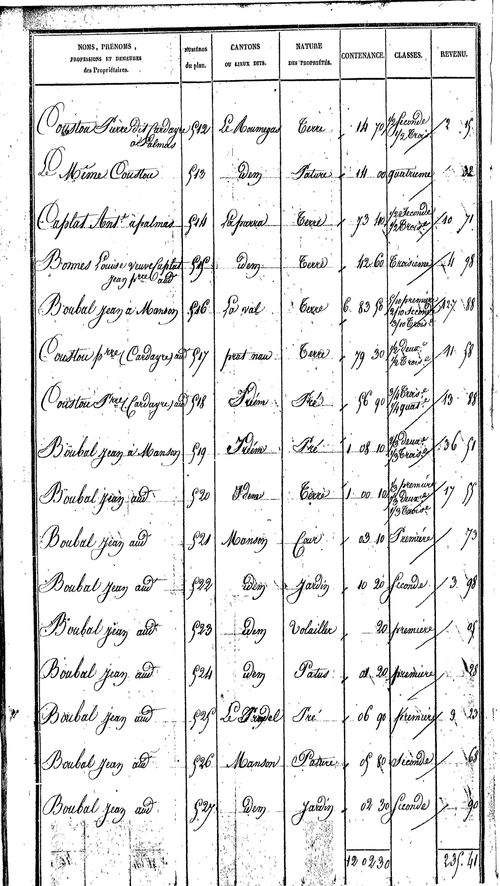 NOMS, PRÉNOMS, PROFESSIONS ET DEMEURES des Propriétaires. NUMÉROS du plan. CANTONS OU LIEUX DITS. NATURE DES PROPRIÉTÉS. CONTENANCE. CLASSES. REVENU.
Coustou Pierre dit Cardayre a Palmas 512 Le Roumegas Terre 14 70 1/2 Seconde 1/2 Trois 2 15
Le Même Coustou 513 idem Pature 14 00 quatrieme 32
Caplat Ant.e a palmas 514 La parra Terre 73 10 1/2 Seconde 1/2 Trois.e 10 71
Bonnes Louise veuve Caplat jean p.rre aud 515 idem Terre 42 60 Troisieme 4 98
Boubal jean a Manson 516 La val Terre 6 83 50 5/10 premiere 2/10 Second 3/10 Trois.e 127 88
Coustou p.rre (Cardayre) aud 517 prat nau Terre 79 30 1/2 deux.e 1/2 Trois.e 11 58
Coustou P.rre (Cardayre) aud 518 Idem Pré 56 90 3/4 Trois.e 1/4 quat.e 13 88
Boubal jean a Manson 519 Idem Pré 1 08 10 deux.e Trois.e 36 51
Boubal jean aud 520 Idem Terre 1 00 10 1/3 premiere 1/3 deux.e 1/3 Trois.e 17 55
Boubal jean aud 521 Manson Cour 03 10 Premiere 73
Boubal jean aud 522 idem Jardin 10 20 Seconde 3 98
Boubal jean aud 523 idem Volailler 20 premiere 05
Boubal jean aud 524 idem Patus 01 20 premiere 28
Boubal jean aud 525 Le Pradel Pré 06 90 premiere 3 23
Boubal jean aud 526 Manson Pature 05 80 Seconde 68
Boubal jean aud 527 idem Jardin 02 30 Seconde 90
12 02 30 235 41